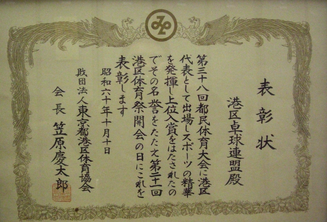 表彰状
港区卓球連盟殿
第三十八回都民体育大会に港区
代表として出場しスポーツの精華
を発揮し上位入賞をはたされたの
でその名誉をたたえ第二十一回
港区体育祭開会の日にこれを
表彰します
昭和六十年十月十日
財団法人東京都港区体育協会
会長 笠原慶太郎